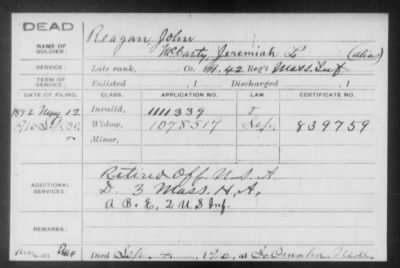 DEAD
NAME OF SOLDIER:
Reagan, John
McCarty, Jeremiah L (alias)
SERVICE: Late rank, Co. M. 42 Reg't Mass. Inf
TERM OF SERVICE: Enlisted , 1 Discharged , 1
DATE OF FILING. CLASS. APPLICATION NO. LAW CERTIFICATE NO.
1892 May 12 Invalid, 1111339
Widow, 1078517 839759
Minor,
ADDITIONAL SERVICES:
Retired Off. U.S.A
D. 3 Mass. H.A.
A B. E, 2 U S Inf.
REMARKS:
Died at So. Omaha, Nebr